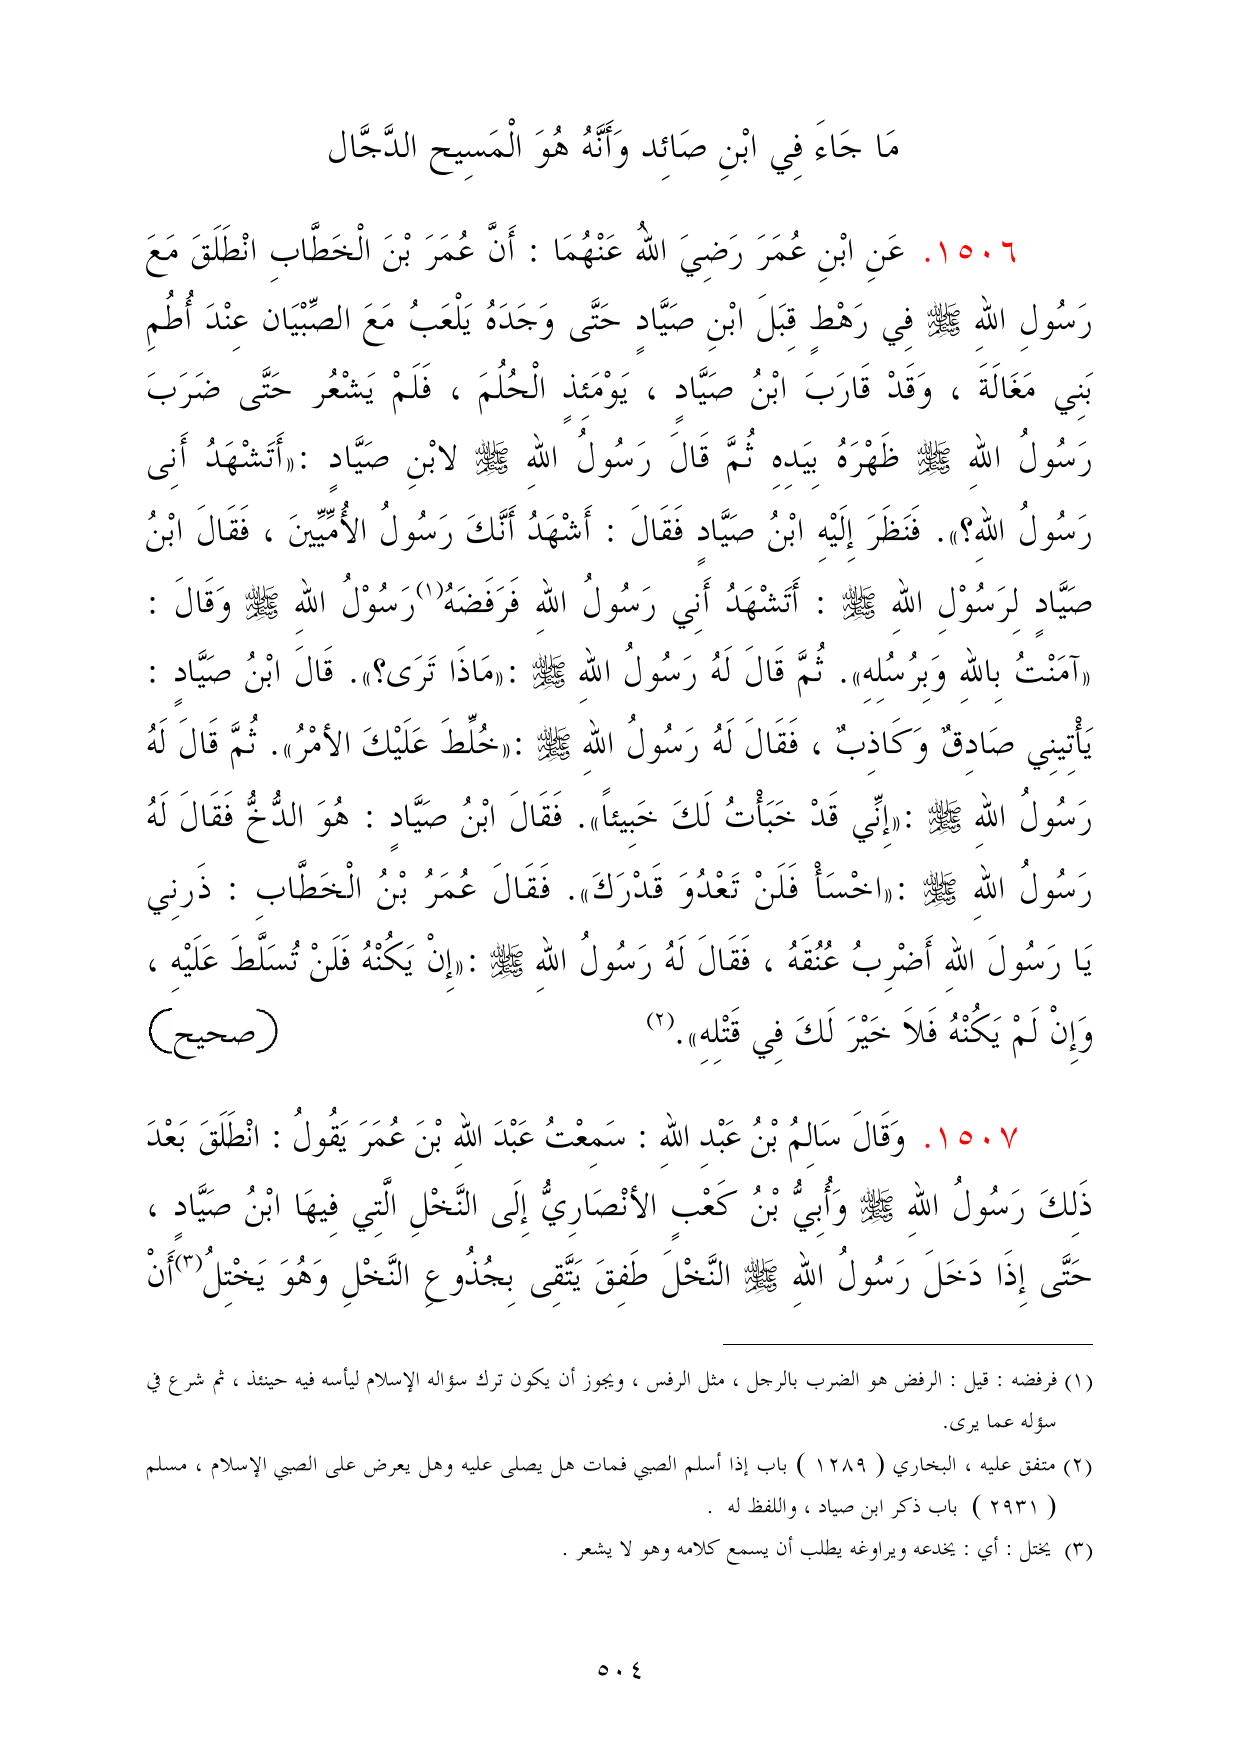 مَا جَاءَ فِي ابْنِ صَائِد وَأَنَّهُ هُوَ الْمَسِيح الدَّجَّال
١٥٠٦. عَنِ ابْنِ عُمَرَ رَضِيَ اللهُ عَنْهُمَا : أَنَّ عُمَرَ بْنَ الْخَطَّابِ انْطَلَقَ مَعَ
رَسُولِ اللهِ ﷺ فِي رَهْطٍ قِبَلَ ابْنِ صَيَّادٍ حَتَّى وَجَدَهُ يَلْعَبُ مَعَ الصِّبْيَان عِنْدَ أُطُمِ
بَنِي مَغَالَةَ ، وَقَدْ قَارَبَ ابْنُ صَيَّادٍ ، يَوْمَئِذٍ الْحُلُمَ ، فَلَمْ يَشْعُر حَتَّى ضَرَبَ
رَسُولُ اللهِ ﷺ ظَهْرَهُ بِيَدِهِ ثُمَّ قَالَ رَسُولُ اللهِ ﷺ لابْنِ صَيَّادٍ :«أَتَشْهَدُ أَنِى
رَسُولُ اللهِ؟». فَنَظَرَ إِلَيْهِ ابْنُ صَيَّادٍ فَقَالَ : أَشْهَدُ أَنَّكَ رَسُولُ الأُمِّيِّينَ ، فَقَالَ ابْنُ
صَيَّادٍ لِرَسُوْلِ اللهِ ﷺ : أَتَشْهَدُ أَنِي رَسُولُ اللهِ فَرَفَضَهُ(١)رَسُوْلُ اللهِ ﷺ وَقَالَ :
«آمَنْتُ بِاللهِ وَبِرُسُلِهِ». ثُمَّ قَالَ لَهُ رَسُولُ اللهِ ﷺ :«مَاذَا تَرَى؟». قَالَ ابْنُ صَيَّادٍ :
يَأْتِينِي صَادِقٌ وَكَاذِبٌ ، فَقَالَ لَهُ رَسُولُ اللهِ ﷺ :«خُلِّطَ عَلَيْكَ الأمْرُ». ثُمَّ قَالَ لَهُ
رَسُولُ اللهِ ﷺ :«إِنِّي قَدْ خَبَأْتُ لَكَ خَبِيئاً». فَقَالَ ابْنُ صَيَّادٍ : هُوَ الدُّخُّ فَقَالَ لَهُ
رَسُولُ اللهِ ﷺ :«اخْسَأْ فَلَنْ تَعْدُوَ قَدْرَكَ». فَقَالَ عُمَرُ بْنُ الْخَطَّابِ : ذَرنِي
يَا رَسُولَ اللهِ أَضْرِبُ عُنُقَهُ ، فَقَالَ لَهُ رَسُولُ اللهِ ﷺ :«إِنْ يَكُنْهُ فَلَنْ تُسَلَّطَ عَلَيْهِ ،
وَإِنْ لَمْ يَكُنْهُ فَلاَ خَيْرَ لَكَ فِي قَتْلِهِ».(٢) (صحيح)
١٥٠٧. وَقَالَ سَالِمُ بْنُ عَبْدِ اللهِ : سَمِعْتُ عَبْدَ اللهِ بْنَ عُمَرَ يَقُولُ : انْطَلَقَ بَعْدَ
ذَلِكَ رَسُولُ اللهِ ﷺ وَأُبيُّ بْنُ كَعْبٍ الأنْصَارِيُّ إِلَى النَّخْلِ الَّتِي فِيهَا ابْنُ صَيَّادٍ ،
حَتَّى إِذَا دَخَلَ رَسُولُ اللهِ ﷺ النَّخْلَ طَفِقَ يَتَّقِى بِجُذُوعِ النَّخْلِ وَهُوَ يَخْتِلُ(٣)أَنْ
(١) فرفضه : قيل : الرفض هو الضرب بالرجل ، مثل الرفس ، ويجوز أن يكون ترك سؤاله الإسلام ليأسه فيه حينئذ ، ثم شرع في
سؤله عما يرى.
(٢) متفق عليه ، البخاري ( ١٢٨٩ ) باب إذا أسلم الصبي فمات هل يصلى عليه وهل يعرض على الصبي الإسلام ، مسلم
( ٢٩٣١ ) باب ذكر ابن صياد ، واللفظ له .
(٣) يختل : أي : يخدعه ويراوغه يطلب أن يسمع كلامه وهو لا يشعر .
٥٠٤